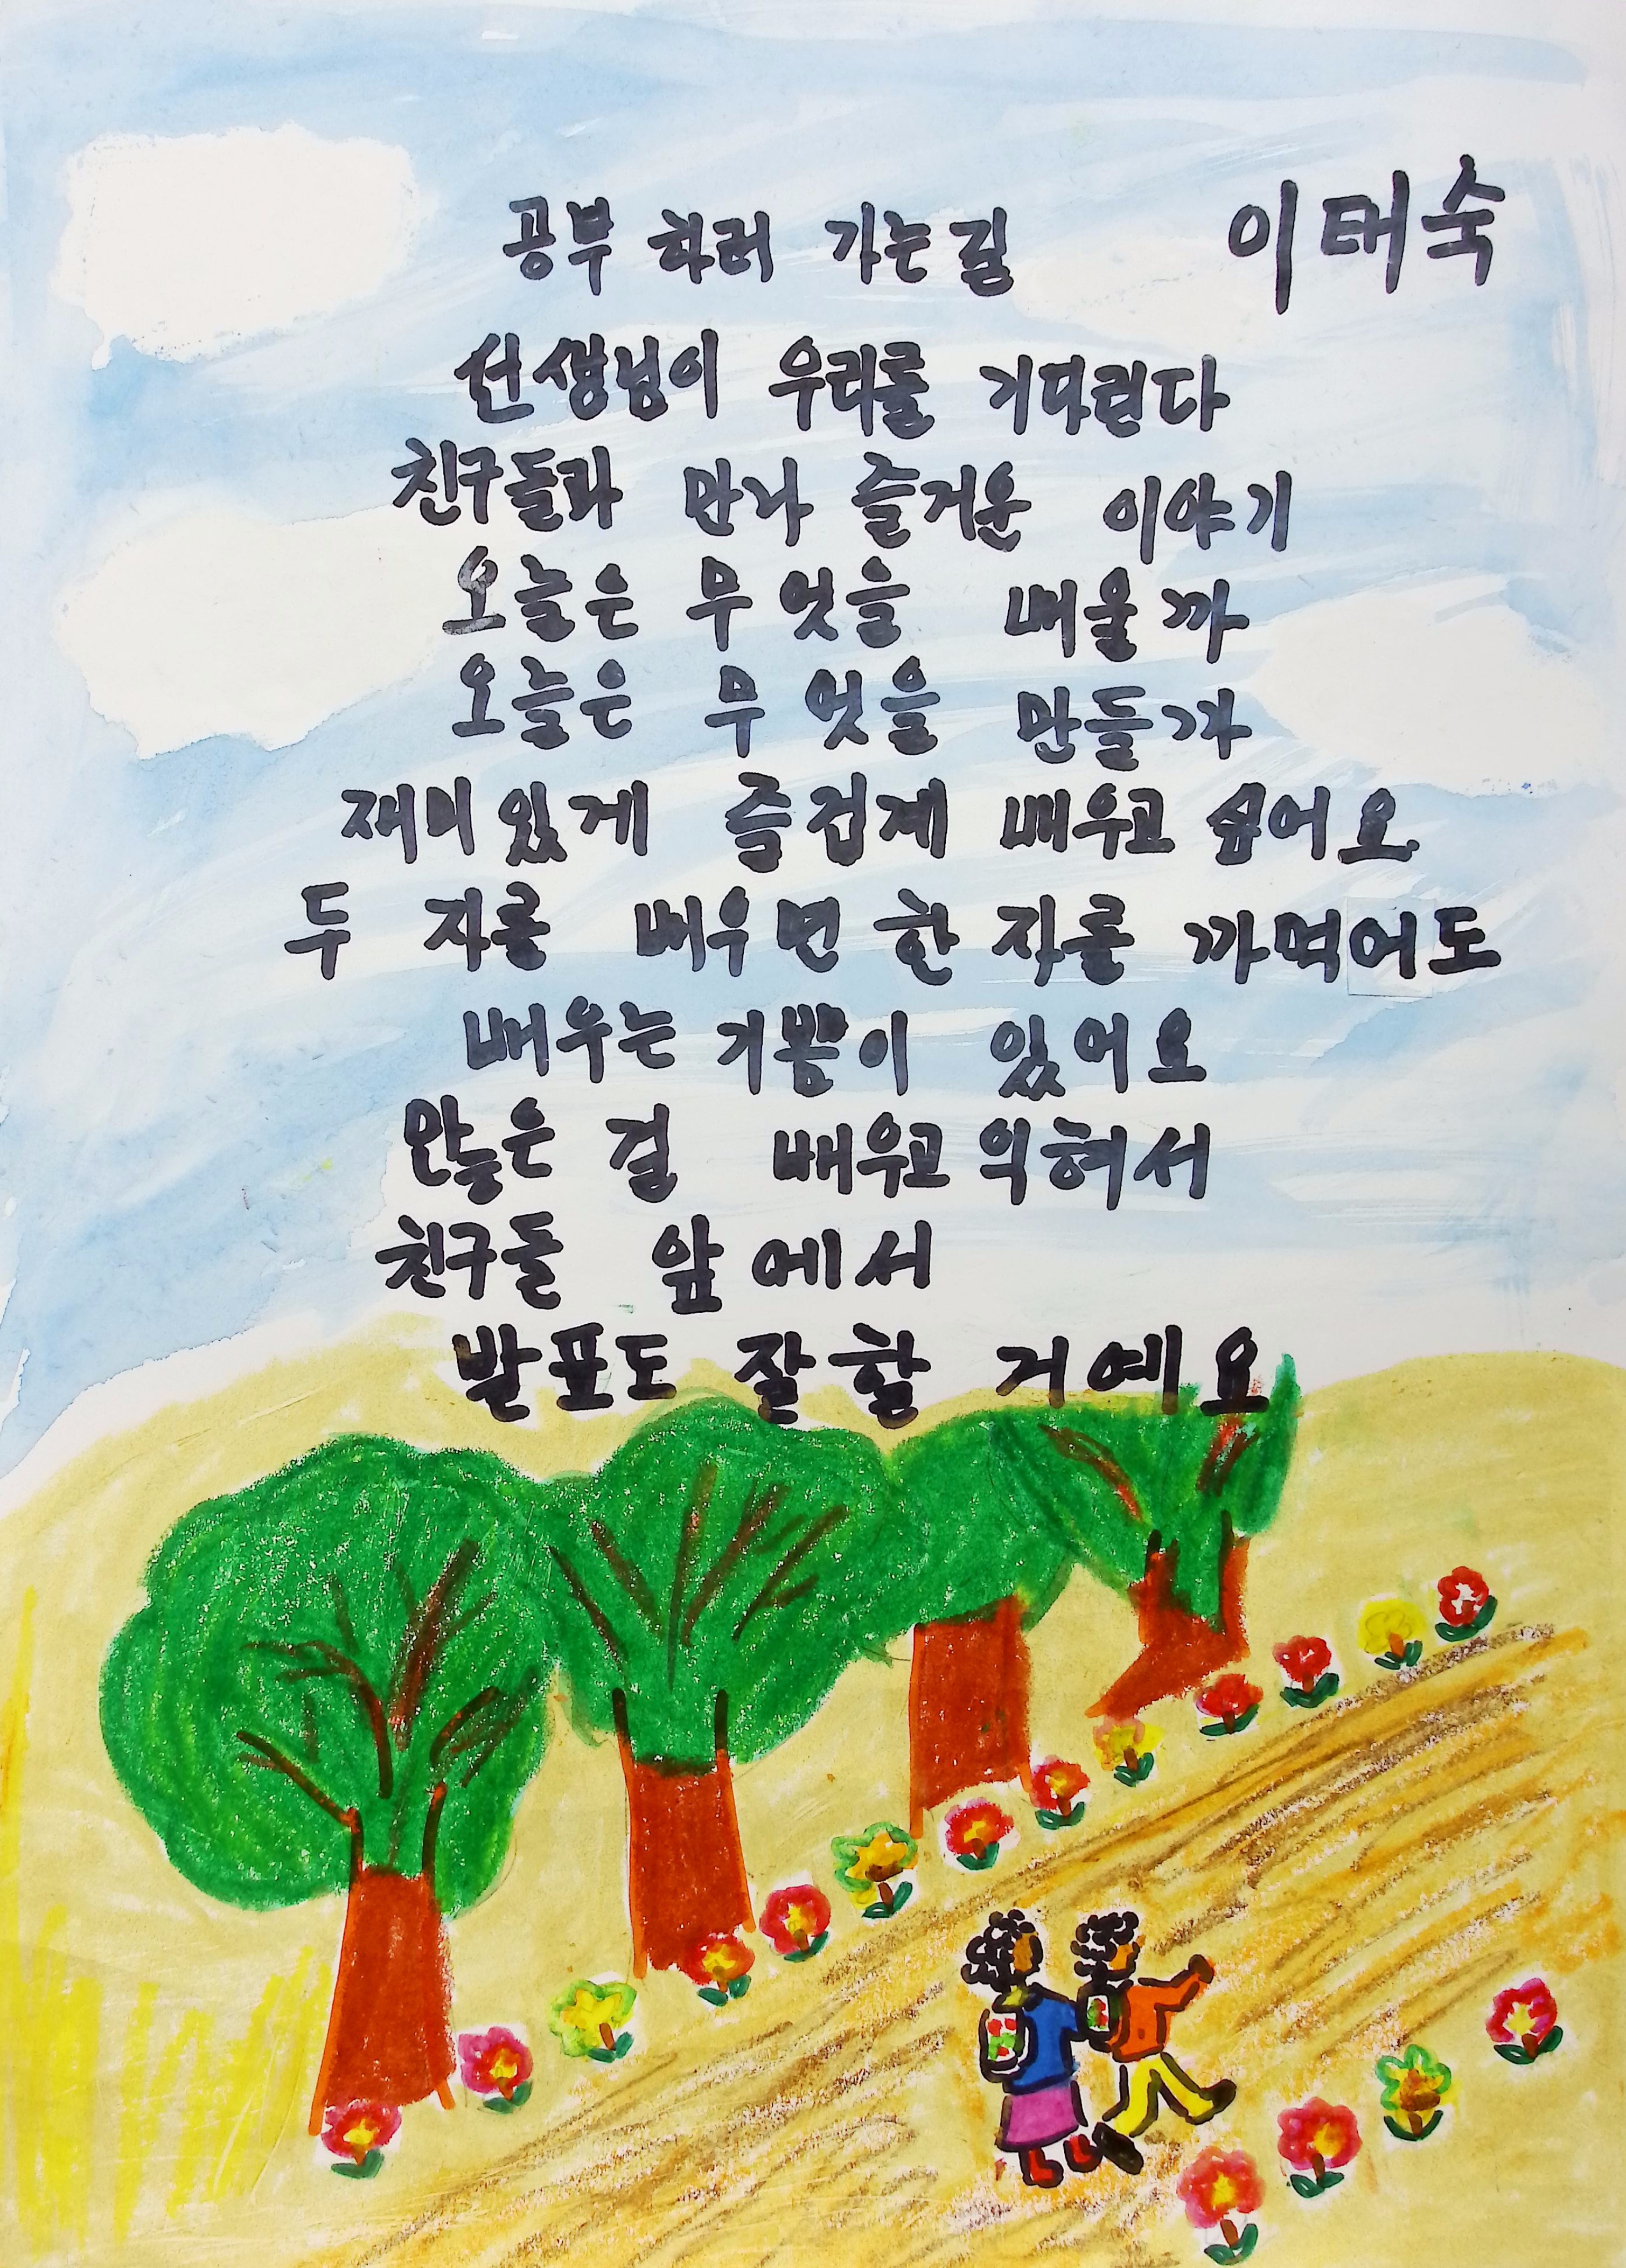 공부 하러 가는 길 이태숙
선생님이 우리를 기다린다
친구들과 만나 즐거운 이야기
오늘은 무엇을 배울까
오늘은 무엇을 만들까
재미있게 즐겁게 배우고 싶어요
두 자를 배우면 한 자를 까먹어도
배우는 기쁨이 있어요
많은 걸 배우고 익혀서
친구들 앞에서
발표도 잘할 거예요